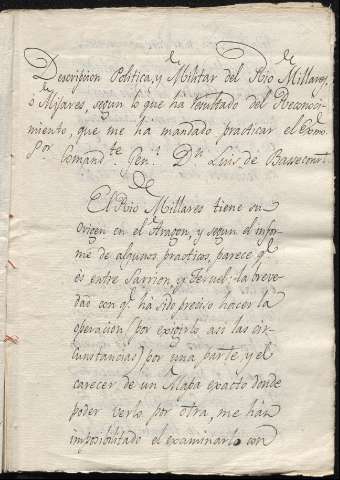 Descripcion Politica, y Militar del Rio Millares,
o Mijares, segun lo que ha resultado del Reconoci-
miento, que me ha mandado practicar el Exmo
Sor. Comandte. Genl. Dn. Luis de Bassecourt.
El Rio Millares tiene su
origen en el Aragon, y segun el infor-
me de algunos practicos, parece qe.
es entre Sarrion, y Teruel; la breve-
dad con qe. ha sido preciso hacer la
operacion (por exigirlo asi las cir-
cunstancias) por una parte, y el
carecer de un Mapa exacto donde
poder verlo por otra, me han
imposibilitado el examinarlo con